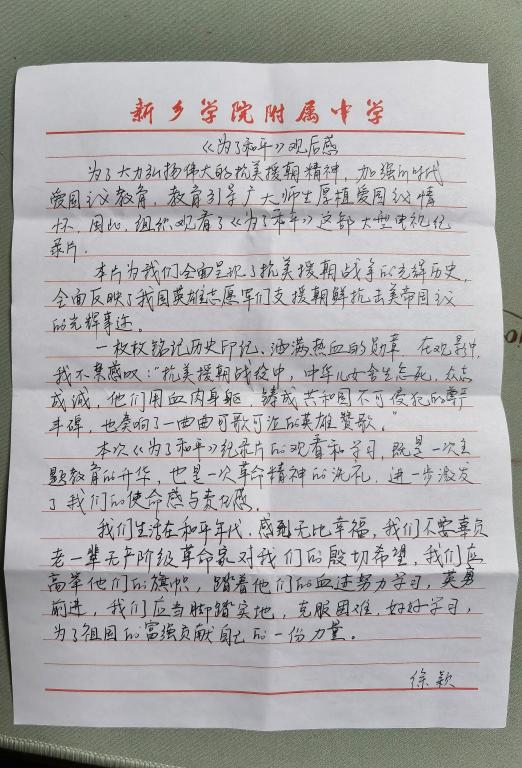 新乡学院附属中学
《为了和平》观后感
为了大力弘扬伟大的抗美援朝精神，加强新时代
爱国主义教育，教育引导广大师生厚植爱国主义情
怀，因此，组织观看了《为了和平》这部大型电视纪
录片．
本片为我们全面呈现了抗美援朝战争的光辉历史，
全面反映了我国英雄志愿军们支援朝鲜抗击美帝国主义
的光辉事迹。
一枚枚铭记历史印记、洒满热血的勋章 在观影中，
我不禁感叹：“抗美援朝战役中，中华儿女舍生忘死，众志
成城，他们用血肉身躯 铸成共和国不可侵犯的尊严
丰碑，也奏响了一曲曲可歌可泣的英雄赞歌。”
本次《为了和平》纪录片的观看和学习，既是一次主
题教育的升华，也是一次革命精神的洗礼，进一步激发
了我们的使命感与责任感．
我们生活在和平年代，感到无比幸福，我们不要辜负
老一辈无产阶级革命家对我们的殷切希望，我们应
高举他们的旗帜，踏着他们的血迹努力学习，英勇
前进，我们应当脚踏实地，克服困难，好好学习，
为了祖国的富强贡献自己的一份力量。
徐颖